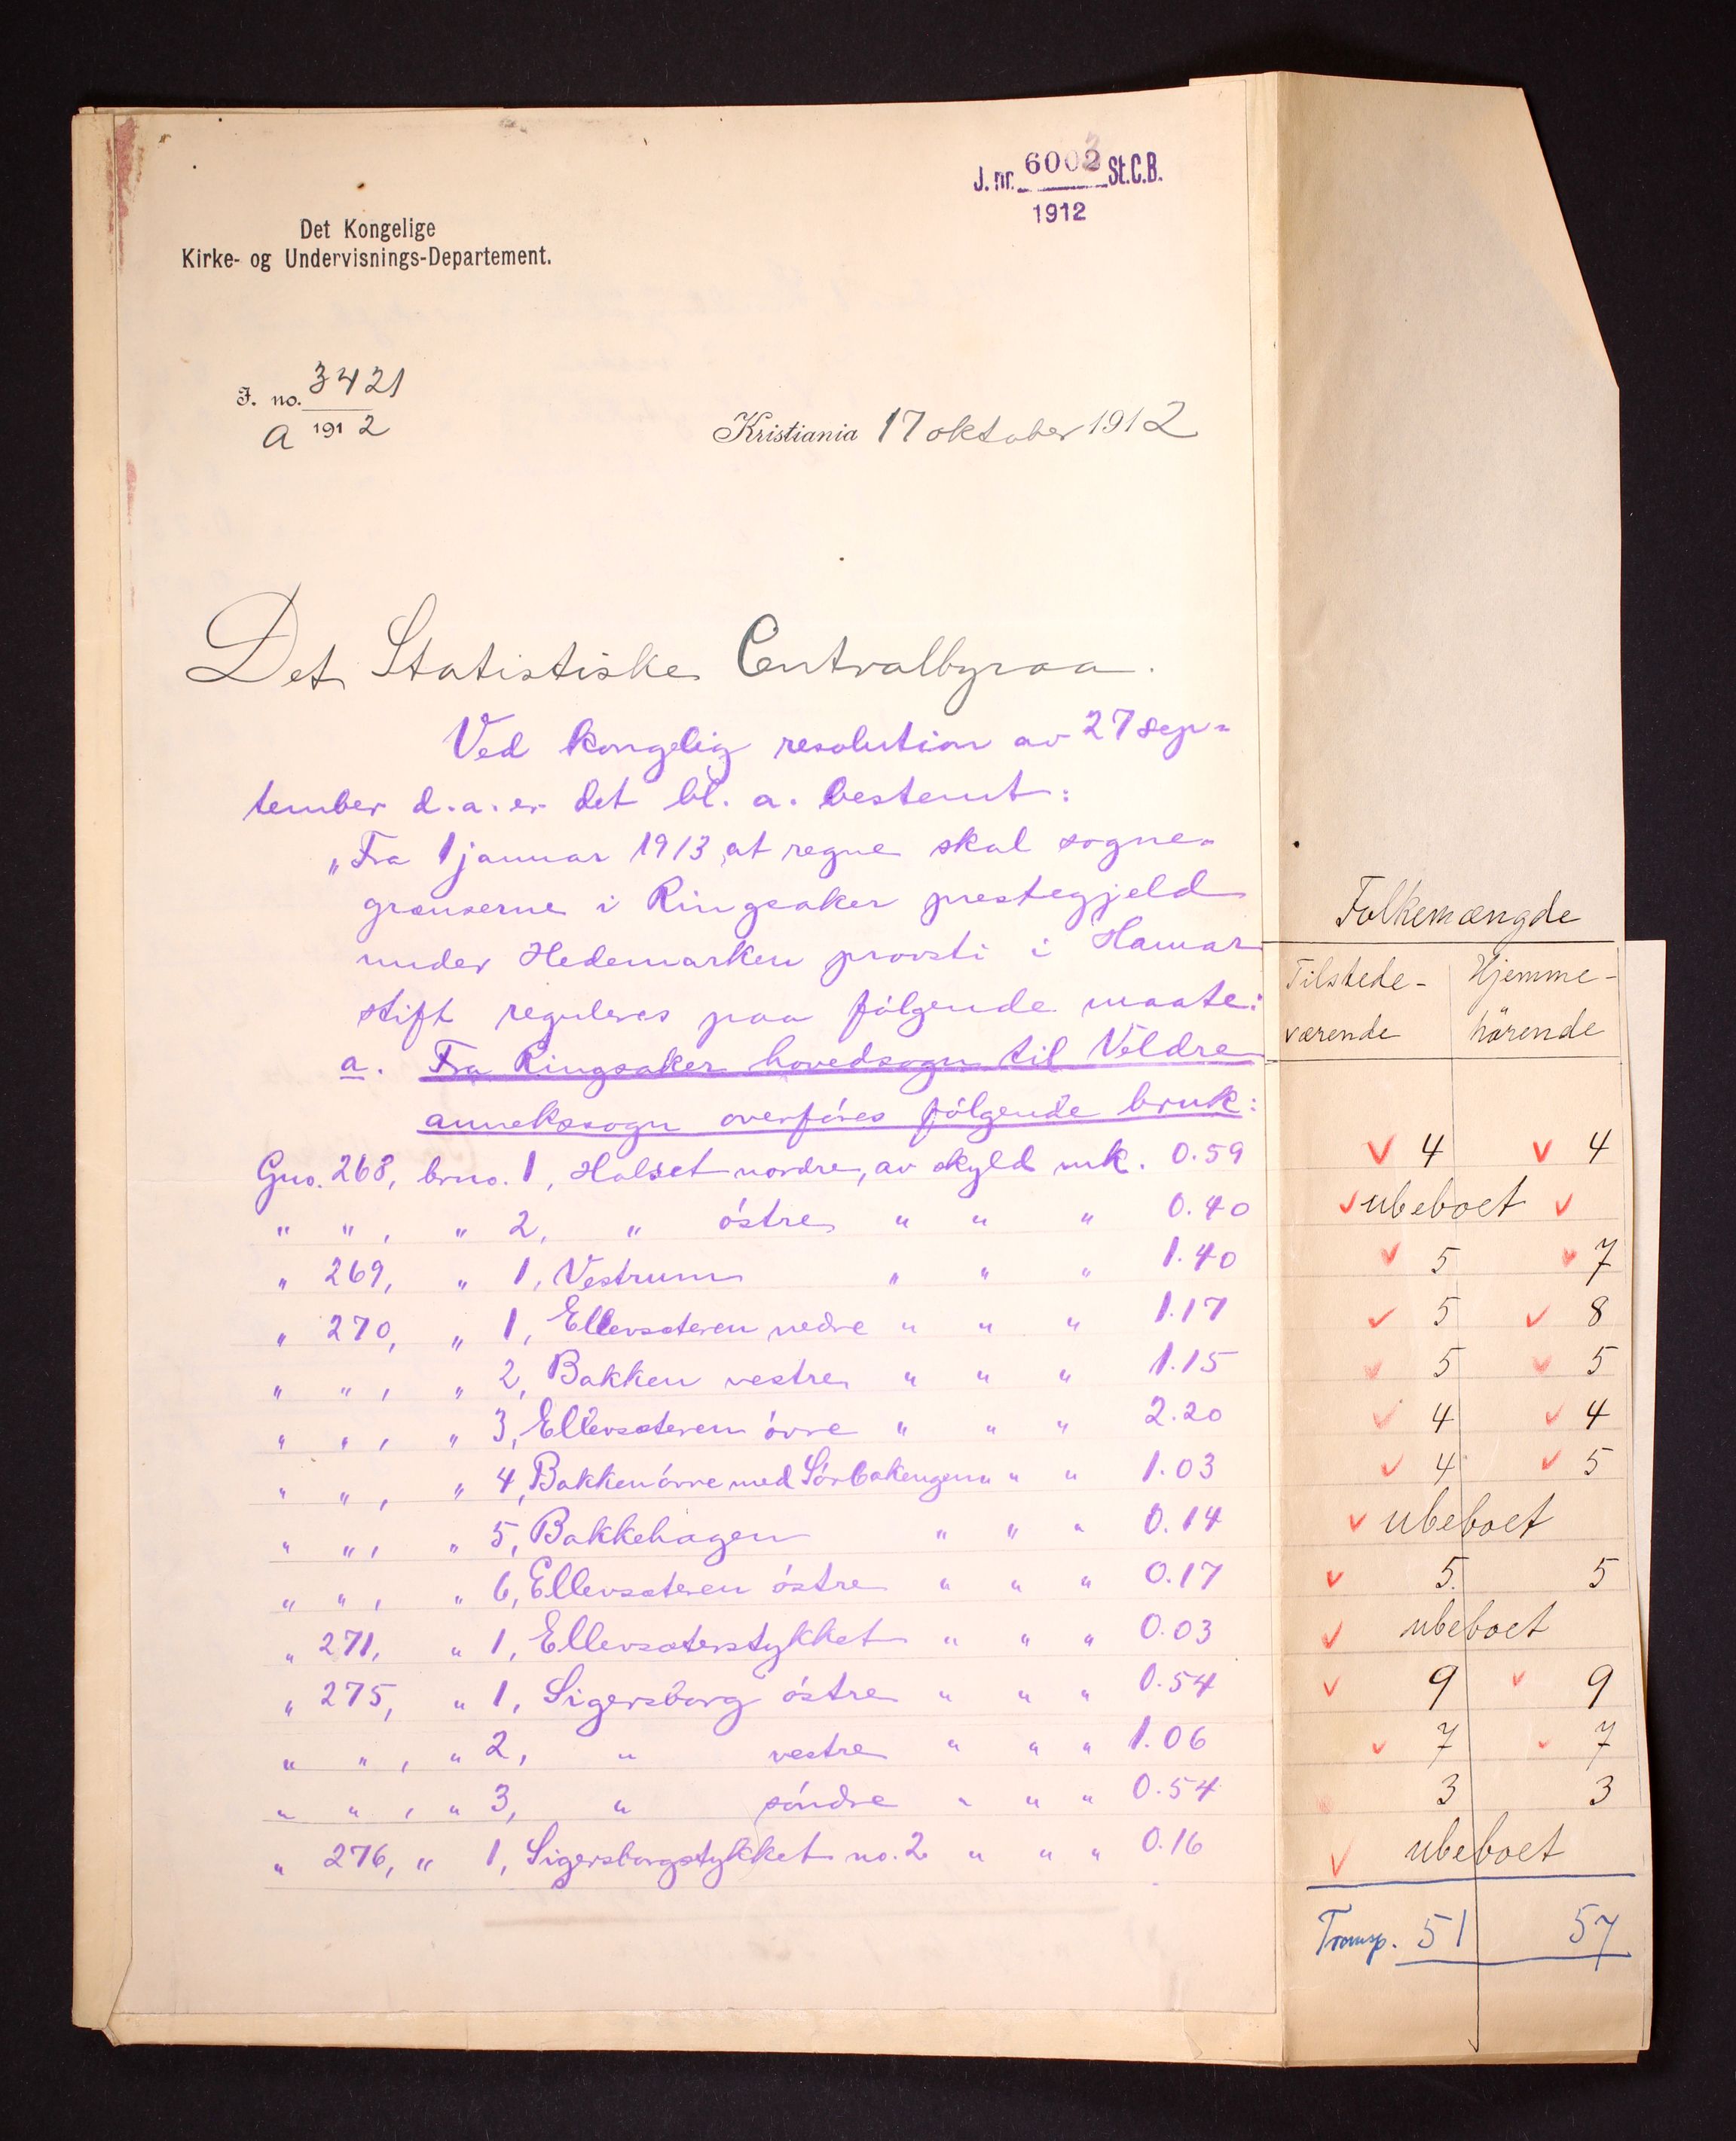 J. nr. 6002 St.C.B.
1912
Det Kongelige
Kirke- og Undervisnings-Departement.
J. no. 3421
A 1912
Kristiania 17 oktober 1912
Det Statistiske Centralbyraa.
Ved kongelig resolution av 27 sep-
tember d.a. er det bl. a. bestemt:
„Fra 1 januar 1913 at regne skal sogne-
grænserne i Ringsaker prestegjeld
under Hedemarken provsti i Hamar
stift reguleres paa følgende maate:
a. Fra Ringsaker hovedsogn til Veldre
annekssogn overføres følgende bruk:
Folkemængde
Tilstede- Hjemme-
værende hörende
Gno. 268, brno. 1, Halset nordre, av skyld mk. 0.59 4 4
" " , " 2, " østre " " " 0.40 ubeboet
" 269, " 1, Vestrum " " " 1.40 5 7
" 270, " 1, Ellevsæteren nedre " " " 1.17 5 8
" " , " 2, Bakken vestre " " " 1.15 5 5
" " , " 3, Ellevsæteren øvre " " " 2.20 4 4
" " , " 4, Bakken øvre med Sørbakengen " " " 1.03 4 5
" " , " 5, Bakkehagen " " " 0.14 ubeboet
" " , " 6, Ellevsæteren østre " " " 0.17 5 5
" 271, " 1, Ellevsæterstykket " " " 0.03 ubeboet
" 275, " 1, Sigersborg østre " " " 0.54 9 9
" " , " 2, " vestre " " " 1.06 7 7
" " , " 3, " søndre " " " 0.54 3 3
" 276, " 1, Sigersborgstykket no. 2 " " " 0.16 ubeboet
Transp. 51 57